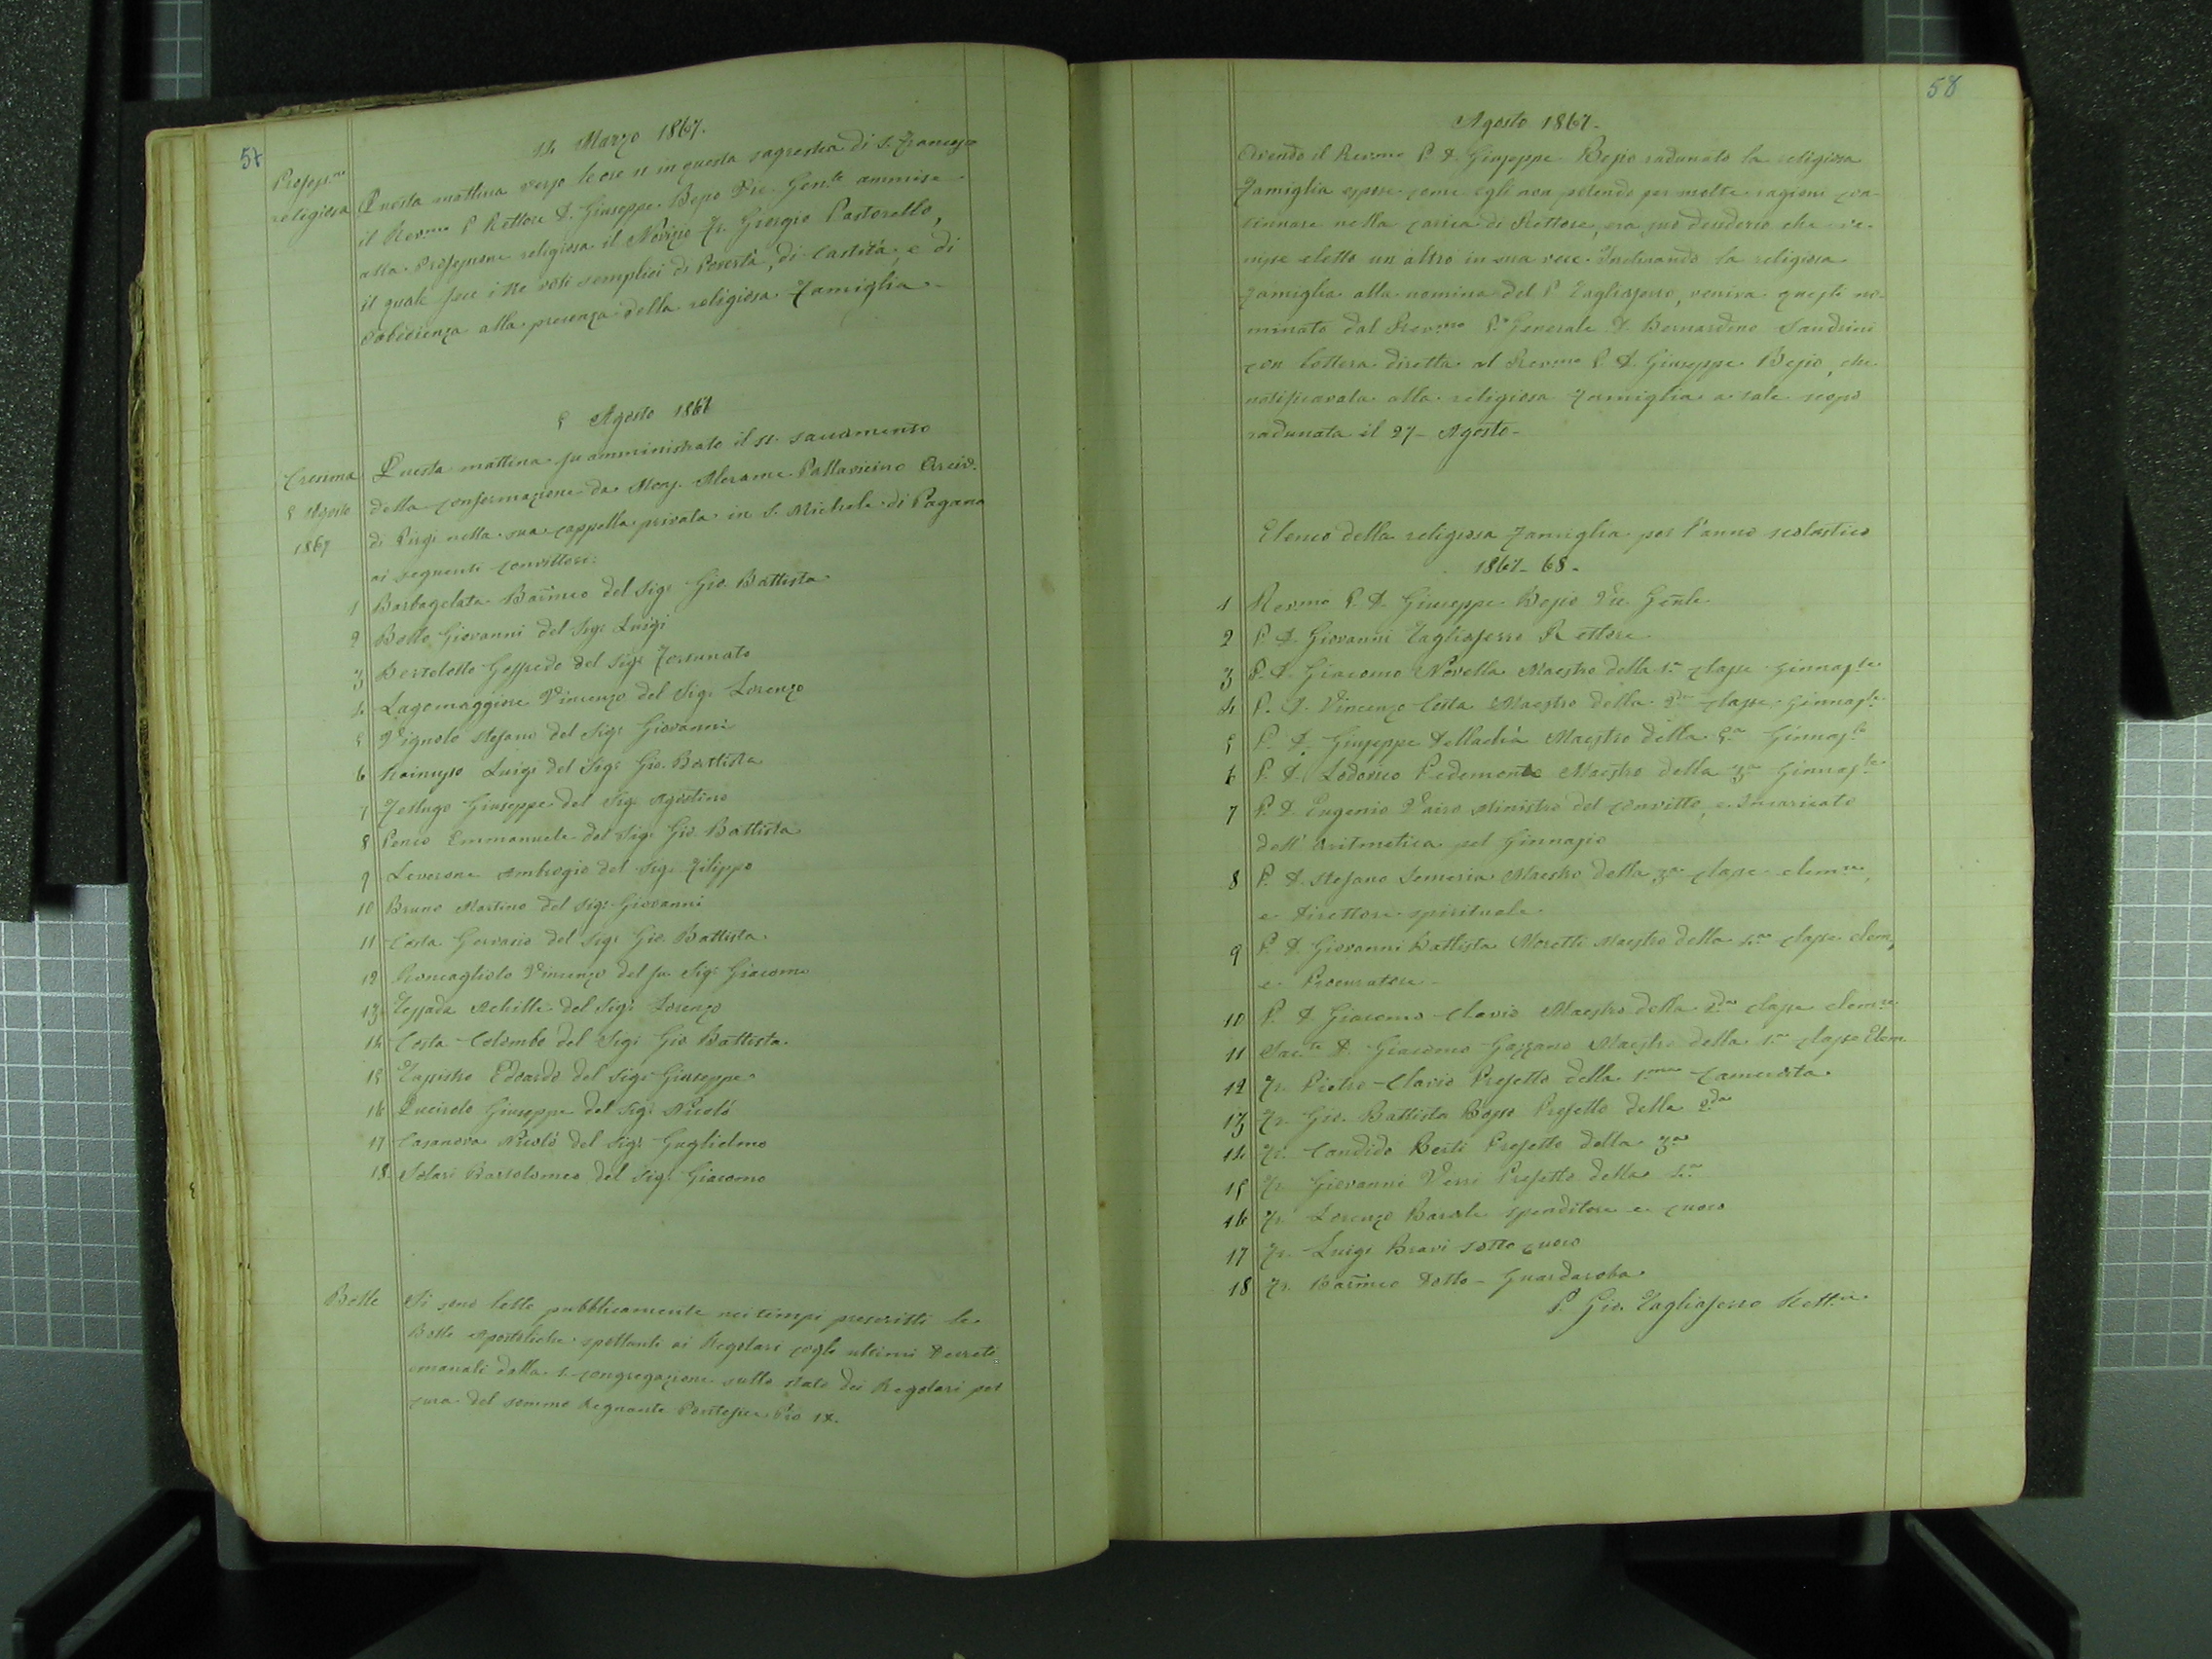 57
14 Marzo 1867.
Professne
religiosa
Questa mattina verso le ore 11 in questa sagrestia di S. Francesco
il Revmo P. Rettore D. Giuseppe Besio Vic. Genle ammise
alla Professione religiosa il Novizio Fr. Giorgio Pastorello,
il quale fece i tre voti semplici di Povertà, di Castità, e di
Obbedienza alla presenza della religiosa Famiglia.
5 Agosto 1867
Cresima
5 Agosto
1867
Questa mattina fu amministrato il SS. Sacramento
della Confermazione da Mons. Alerame Pallavicino Arciv.
di Pirgi nella sua cappella privata in S. Michele di Pagana
ai seguenti convittori:
1 Barbagelata Barmeo del Sigr Gio. Battista
2 Botto Giovanni del Sigr Luigi
3 Bertolotto Goffredo del Sigr Fortunato
4 Lagomaggiore Vincenzo del Sigr Lorenzo
5 Vignolo Stefano del Sigr Giovanni
6 Luigi del Sigr Gio. Battista
7 Giuseppe del Sigr Agostino
8 Penco Emmanuele del Sigr Gio. Battista
9 Leverone Ambrogio del Sigr Filippo
10 Bruno Martino del Sigr Giovanni
11 Costa Gervasio del Sigr Gio. Battista
12 Roncagliolo Vincenzo del fu Sigr Giacomo
13 Tessada Achille del Sigr Lorenzo
14 Costa Colombo del Sigr Gio Battista.
15 Edoardo del Sigr Giuseppe
16 Queirolo Giuseppe del Sigr Nicolò
17 Casanova Nicolò del Sigr Guglielmo
18 Solari Bartolomeo del Sigr Giacomo
Bolle
Si sono lette pubblicamente nei tempi prescritti le
Bolle Apostoliche spettanti ai Regolari cogli ultimi Decreti
emanati dalla S. Congregazione sullo stato dei Regolari per
cura del sommo Regnante Pontefice Pio IX.
58
Agosto 1867.
Avendo il Revmo P. D. Giuseppe Besio radunato la religiosa
Famiglia espose come egli non potendo per molte ragioni con-
tinuare nella carica di Rettore, era suo desiderio che ve-
nisse eletto un altro in sua vece. Inclinando la religiosa
Famiglia alla nomina del P. Tagliaferro, veniva questi no-
minato dal Revmo P. Generale D. Bernardino Sandrini
con lettera diretta al Revmo P. D. Giuseppe Besio, che
notificavala alla religiosa Famiglia a tale scopo
radunata il 27 Agosto.
Elenco della religiosa Famiglia per l'anno scolastico
1867-68.
1 Revmo P. D. Giuseppe Besio Vic. Genle
2 P. D. Giovanni Tagliaferro Rettore
3 P. D. Giacomo Novella Maestro della 1a classe Ginnasle
4 P. D. Vincenzo Costa Maestro della 2da classe Ginnasle
5 P. D. Giuseppe Maestro della 5a Ginnasle
6 P. D. Lodovico Pedemonte Maestro della 3a Ginnasle
7 P. D. Eugenio Vairo Ministro del Convitto, e Incaricato
dell'Aritmetica pel Ginnasio
8 P. D. Stefano Semeria Maestro della 3a classe elemre,
e Direttore spirituale
9 P. D. Giovanni Battista Moretti Maestro della 4a classe elem,
e Procuratore
10 P. D. Giacomo Clavio Maestro della 2da classe elemre
11 Sacte D. Giacomo Gazzano Maestro della 1a classe Elem.
12 Fr. Pietro Clavio Prefetto della 1ma Camerata
13 Fr. Gio. Battista Bosso Prefetto della 2da
14 Fr. Candido Berti Prefetto della 3a
15 Fr. Giovanni Verri Prefetto della 4a
16 Fr. Lorenzo Barale spenditore e cuoco
17 Fr. Luigi Bravi sotto cuoco
18 Fr. Barmeo Dotto - Guardaroba
P. Gio. Tagliaferro Rettre